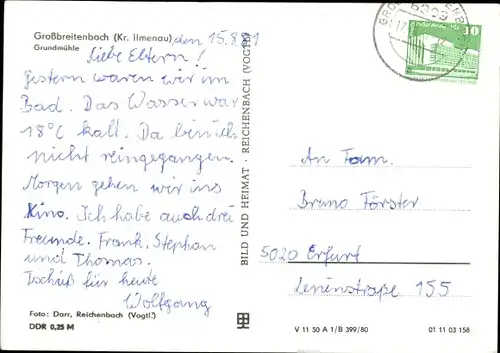 Großbreitenbach (Kr. Ilmenau) den 15.8.81
Grundmühle
Liebe Eltern!
Gestern waren wir im
Bad. Das Wasser war
18°C kalt. Da bin ich
nicht reingegangen.
Morgen gehen wir ins
Kino. Ich habe auch drei
Freunde. Frank, Stephan
und Thomas.
Tschüß für heute
Wolfgang
Foto: Darr, Reichenbach (Vogtl.)
DDR 0,25 M
BILD UND HEIMAT · REICHENBACH (VOGTL)
10
An Fam.
Bruno Förster
5020 Erfurt
Leninstraße 155
V 11 50 A 1/B 399/80
01 11 03 158